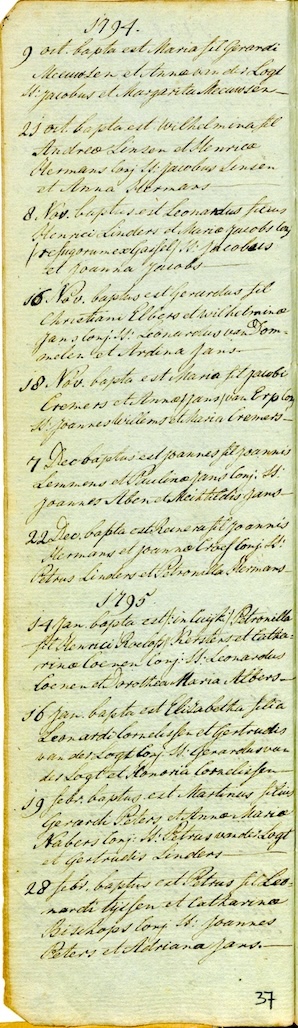 1794.
9 oct. bapta est Maria fil Gerardi
Meeuwsen et Annæ van der Logt
St: Jacobus et Margarita Meeuwsen
21 oct. bapta est Wilhelmina fil
Andreæ Lensen et Henricæ
Hermans Conj St: Jacobus Lensen
et Anna Hermans
8 Nov. baptus est Leonardus filius
Henrici Linders et Mariæ Jacobs Conj
St: Jacobus
et Joanna Jacobs
16 Nov. baptus est Gerardus fil
Christiani Elbers et Wilhelminæ
Jans Conj. St: Leonardus van Dom-
melen et Ardina Jans
18 Nov. bapta est Maria fil Jacobi
Cremers et Annæ Jans van Erp Conj
St: Joannes Willems et Maria Cremers
7 Dec baptus est Joannes fil Joannis
Lemmens et Paulinæ Jans Conj. St:
Joannes Aben et Mechtildis Jans
22 Dec. bapta est Reinera fil Joannis
Hermans et Joannæ Conj. St:
Petrus Linders et Petronilla Hermans
1795
14 Jan. bapta est Petronilla
fil Henrici Kersten et Catha-
rinæ Loenen Conj. St: Leonardus
Loenen et Dorothea Maria Albers
16 Jan. bapta est Elisabetha filia
Leonardi Cornelissen et Gertrudis
van der Logt Conj. St: Gerardus van
der Logt et Honoria Cornelissen
19 febr. baptus est Martinus filius
Gerardi Peters et Annæ Mariæ
Nabers Conj. St: Petrus van der Logt
et Gertrudis Linders
28 febr. baptus est Petrus fil Leo-
nardi Tijssen et Catharinæ
Bisschops Conj St: Joannes
Peters et Adriana Jans.
37